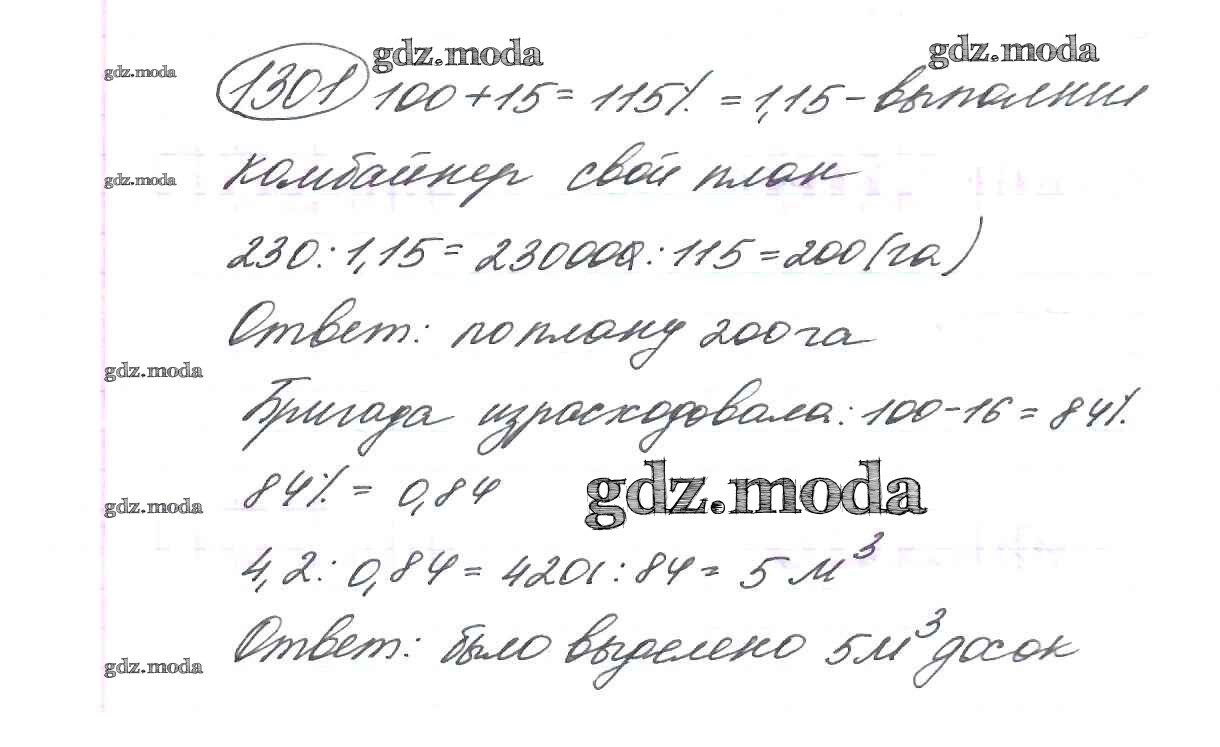 gdz.moda gdz.moda gdz.moda
1301 100+15=115% =1,15-выполнил
gdz.moda комбайнер свой план
230:1,15=23000:115=200(га)
Ответ: по плану 200га
gdz.moda
Бригада израсходовала: 100-16=84%
84%=0,84 gdz.moda
gdz.moda
4,2:0,84=420:84=5м³
Ответ: было выделено 5м³ досок
gdz.moda